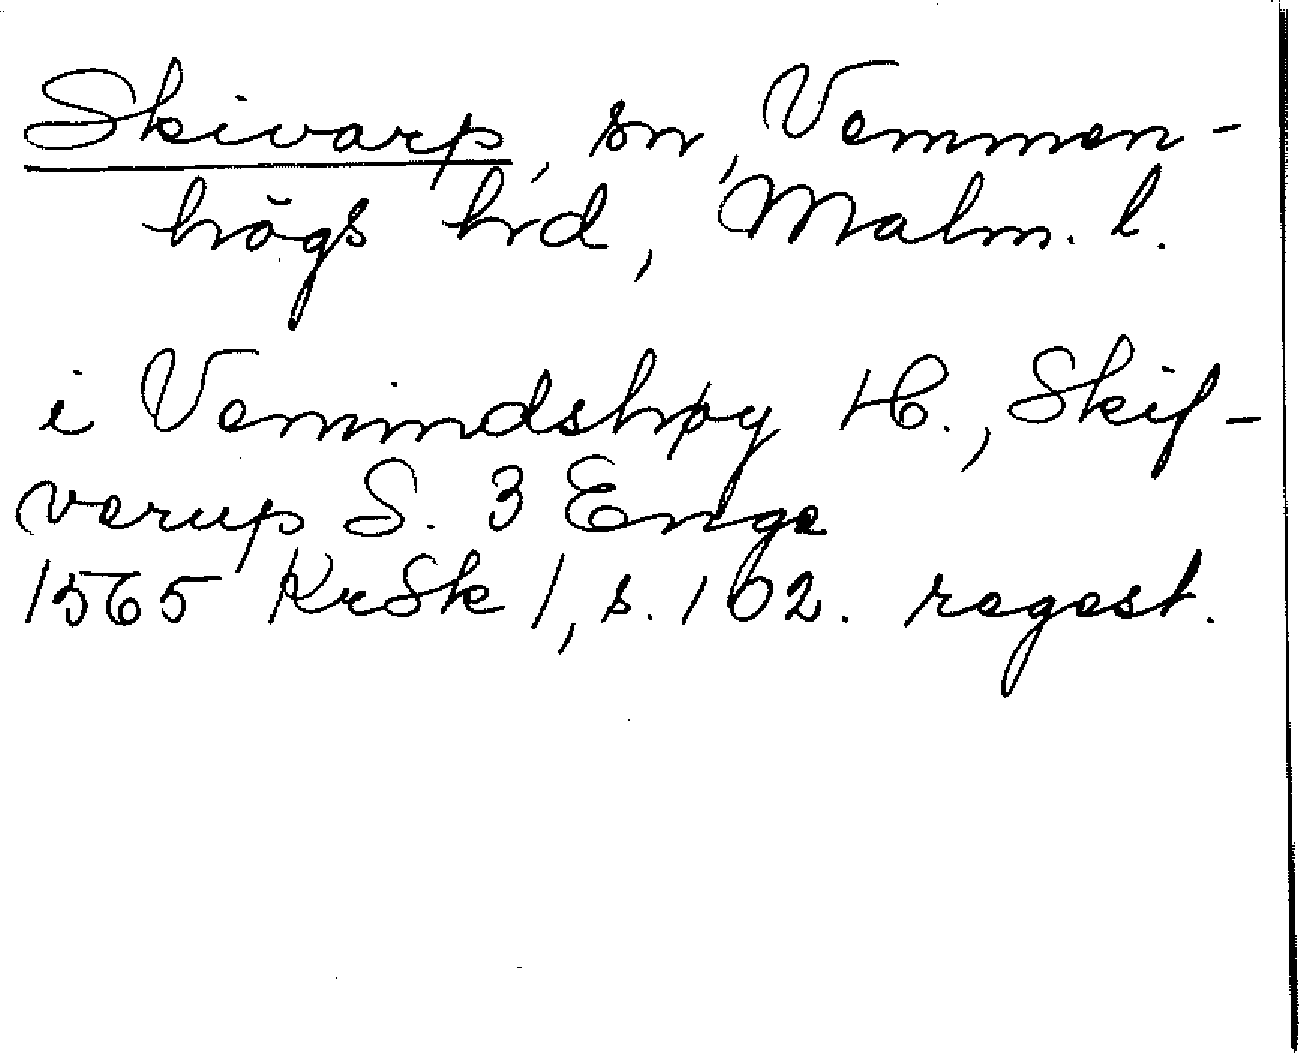 Skivarp, sn, Vemmen-
högs hd, Malm. l.
i Vemindshøy H., Skif-
verup S. 3 Enge
1565 KrSk 1, s. 162. regest.